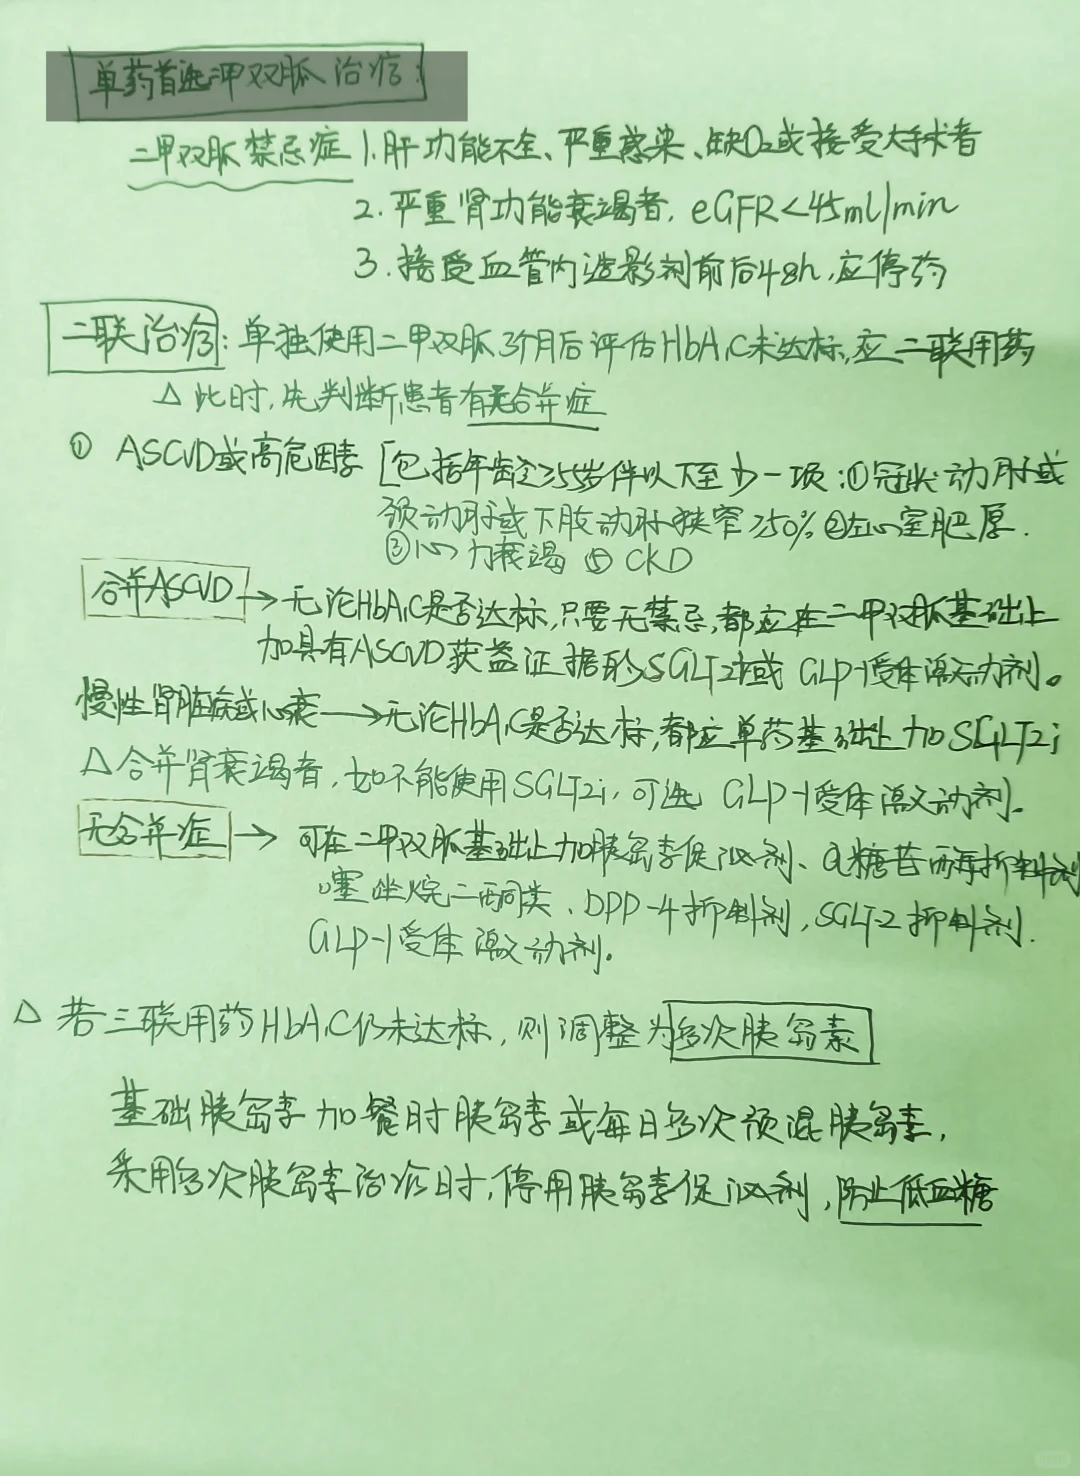 单药首选二甲双胍治疗:
二甲双胍禁忌症 1.肝功能不全、严重感染、缺O₂或接受大手术者
2.严重肾功能衰竭者, eGFR<45ml/min
3.接受血管内造影剂前后48h,应停药
二联治疗:单独使用二甲双胍3个月后评估HbA1C未达标,应二联用药
△ 此时,先判断患者有无合并症
① ASCVD或高危因素 [包括年龄≥55岁伴以下至少一项:①冠状动脉或
颈动脉或下肢动脉狭窄≥50% ②左心室肥厚.
③心力衰竭 ⑤ CKD
合并ASCVD → 无论HbA1C是否达标,只要无禁忌,都应在二甲双胍基础上
加具有ASCVD获益证据的SGLT2i或 GLP-1受体激动剂。
慢性肾脏病或心衰 → 无论HbA1C是否达标,都应单药基础上加SGLT2i
△ 合并肾衰竭者,如不能使用SGLT2i,可选 GLP-1受体激动剂.
无合并症 → 可在二甲双胍基础上加胰岛素促泌剂、α糖苷酶抑制剂
噻唑烷二酮类、DPP-4抑制剂,SGLT-2抑制剂.
GLP-1受体激动剂。
△ 若三联用药HbA1C仍未达标,则调整为多次胰岛素
基础胰岛素加餐时胰岛素或每日多次预混胰岛素,
采用多次胰岛素治疗时,停用胰岛素促泌剂,防止低血糖